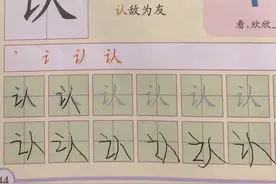 认
认敌为友
看,欣欣
丶 讠 认 认
认 认 认 认 认 认
认 认 认 认 认 认
44